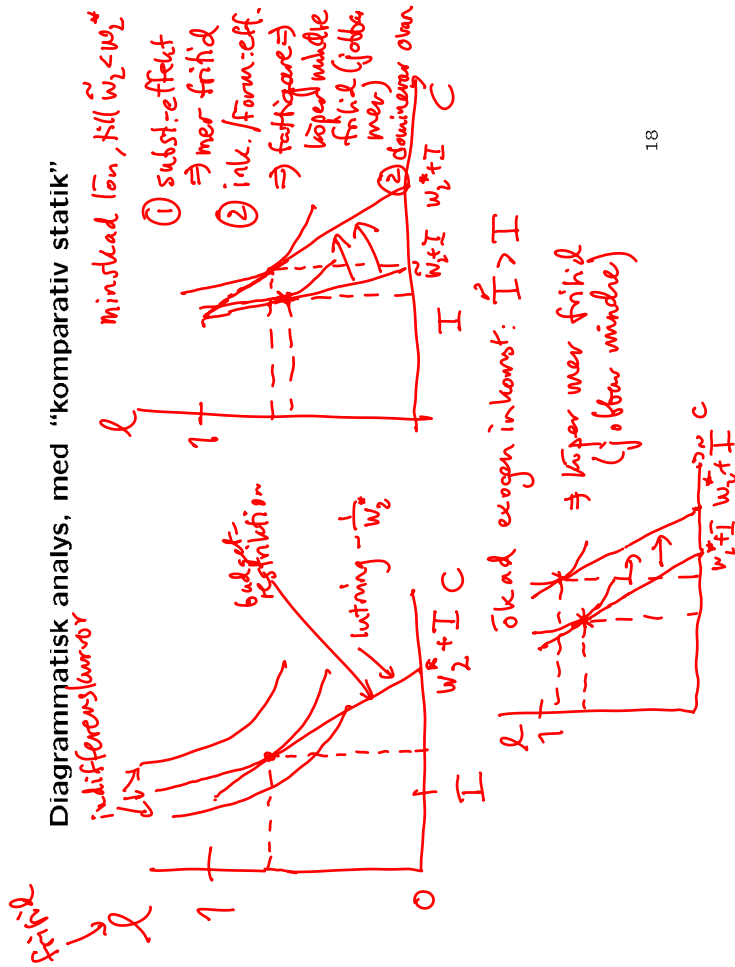 Diagrammatisk analys, med "komparativ statik"
fritid
l
1
0
indifferenskurvor
budget-
restriktion
lutning -1/w₂*
I
w₂*+I
C
minskad lön, till w̃₂<w₂*
① subst.effekt
⇒ mer fritid
② ink./förm.eff.
⇒ fattigare ⇒
köper mindre
fritid (jobbar
mer)
② dominerar ovan
l
1
I
w̃₂+I
w₂*+I
C
ökad exogen inkomst: Ĩ > I
⇒ köper mer fritid
(jobbar mindre)
l
1
w₂*+I
w₂*+Ĩ
C
18